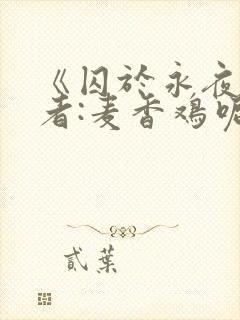 《囚於永夜
者:麦香鸡呢
貳葉